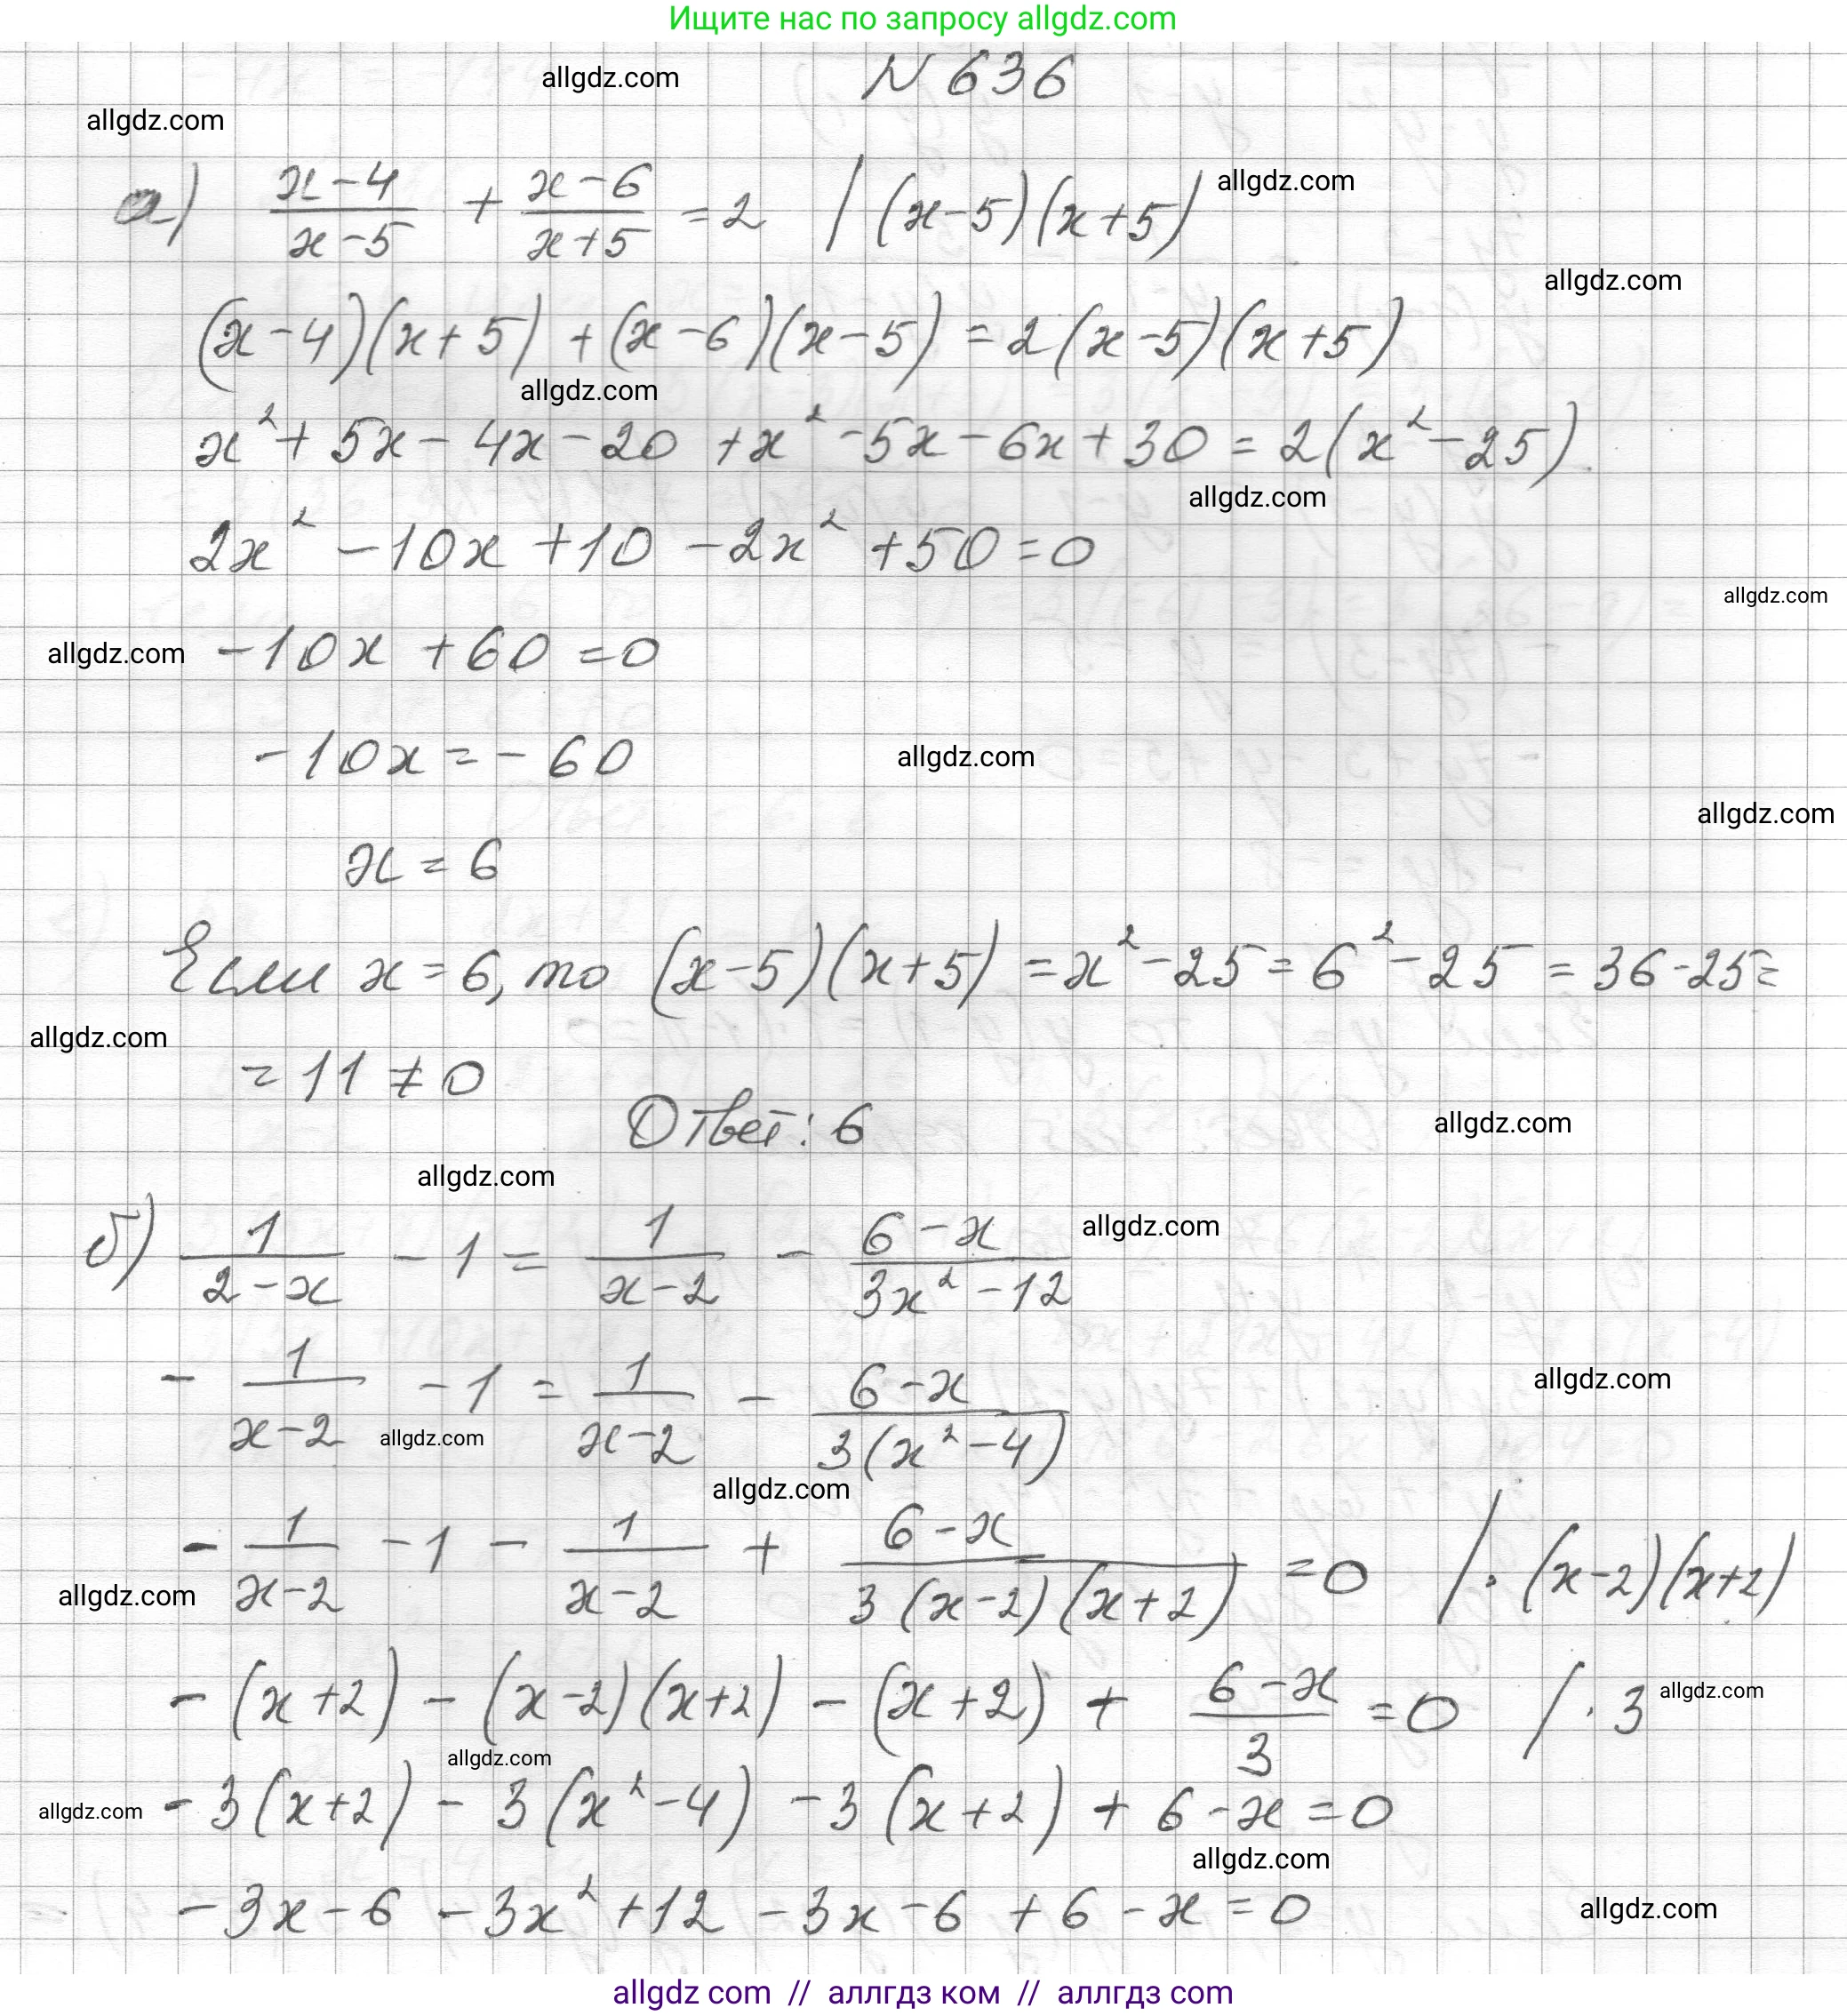 Ищите нас по запросу allgdz.com
allgdz.com
N 636
allgdz.com
а) (x-4)/(x-5) + (x-6)/(x+5) = 2 | (x-5)(x+5)
allgdz.com
allgdz.com
(x-4)(x+5) + (x-6)(x-5) = 2(x-5)(x+5)
allgdz.com
x² + 5x - 4x - 20 + x² - 5x - 6x + 30 = 2(x² - 25)
allgdz.com
2x² - 10x + 10 - 2x² + 50 = 0
allgdz.com
allgdz.com
-10x + 60 = 0
-10x = -60
allgdz.com
allgdz.com
x = 6
Если x = 6, то (x-5)(x+5) = x² - 25 = 6² - 25 = 36 - 25 =
allgdz.com
= 11 ≠ 0
Ответ: 6
allgdz.com
allgdz.com
б) 1/(2-x) - 1 = 1/(x-2) - (6-x)/(3x²-12)
allgdz.com
-1/(x-2) - 1 = 1/(x-2) - (6-x)/(3(x²-4))
allgdz.com
allgdz.com
allgdz.com
-1/(x-2) - 1 - 1/(x-2) + (6-x)/(3(x-2)(x+2)) = 0 | · (x-2)(x+2)
allgdz.com
-(x+2) - (x-2)(x+2) - (x+2) + (6-x)/3 = 0 | · 3
allgdz.com
allgdz.com
allgdz.com
-3(x+2) - 3(x²-4) - 3(x+2) + 6 - x = 0
allgdz.com
-3x - 6 - 3x² + 12 - 3x - 6 + 6 - x = 0
allgdz.com
allgdz com // аллгдз ком // аллгдз com